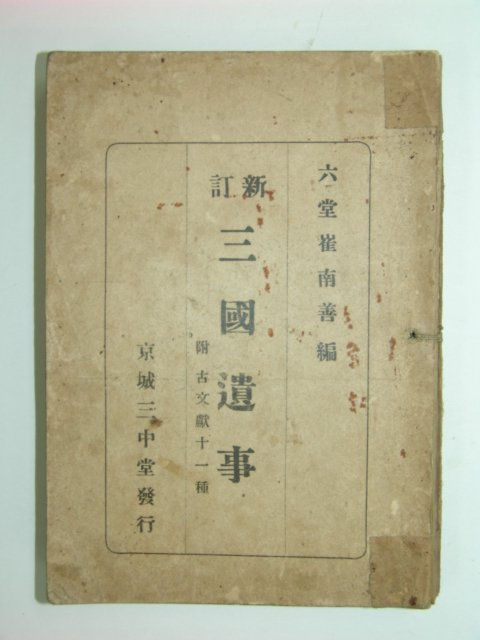 六堂崔南善編
新訂
三國遺事
附古文獻十一種
京城三中堂發行